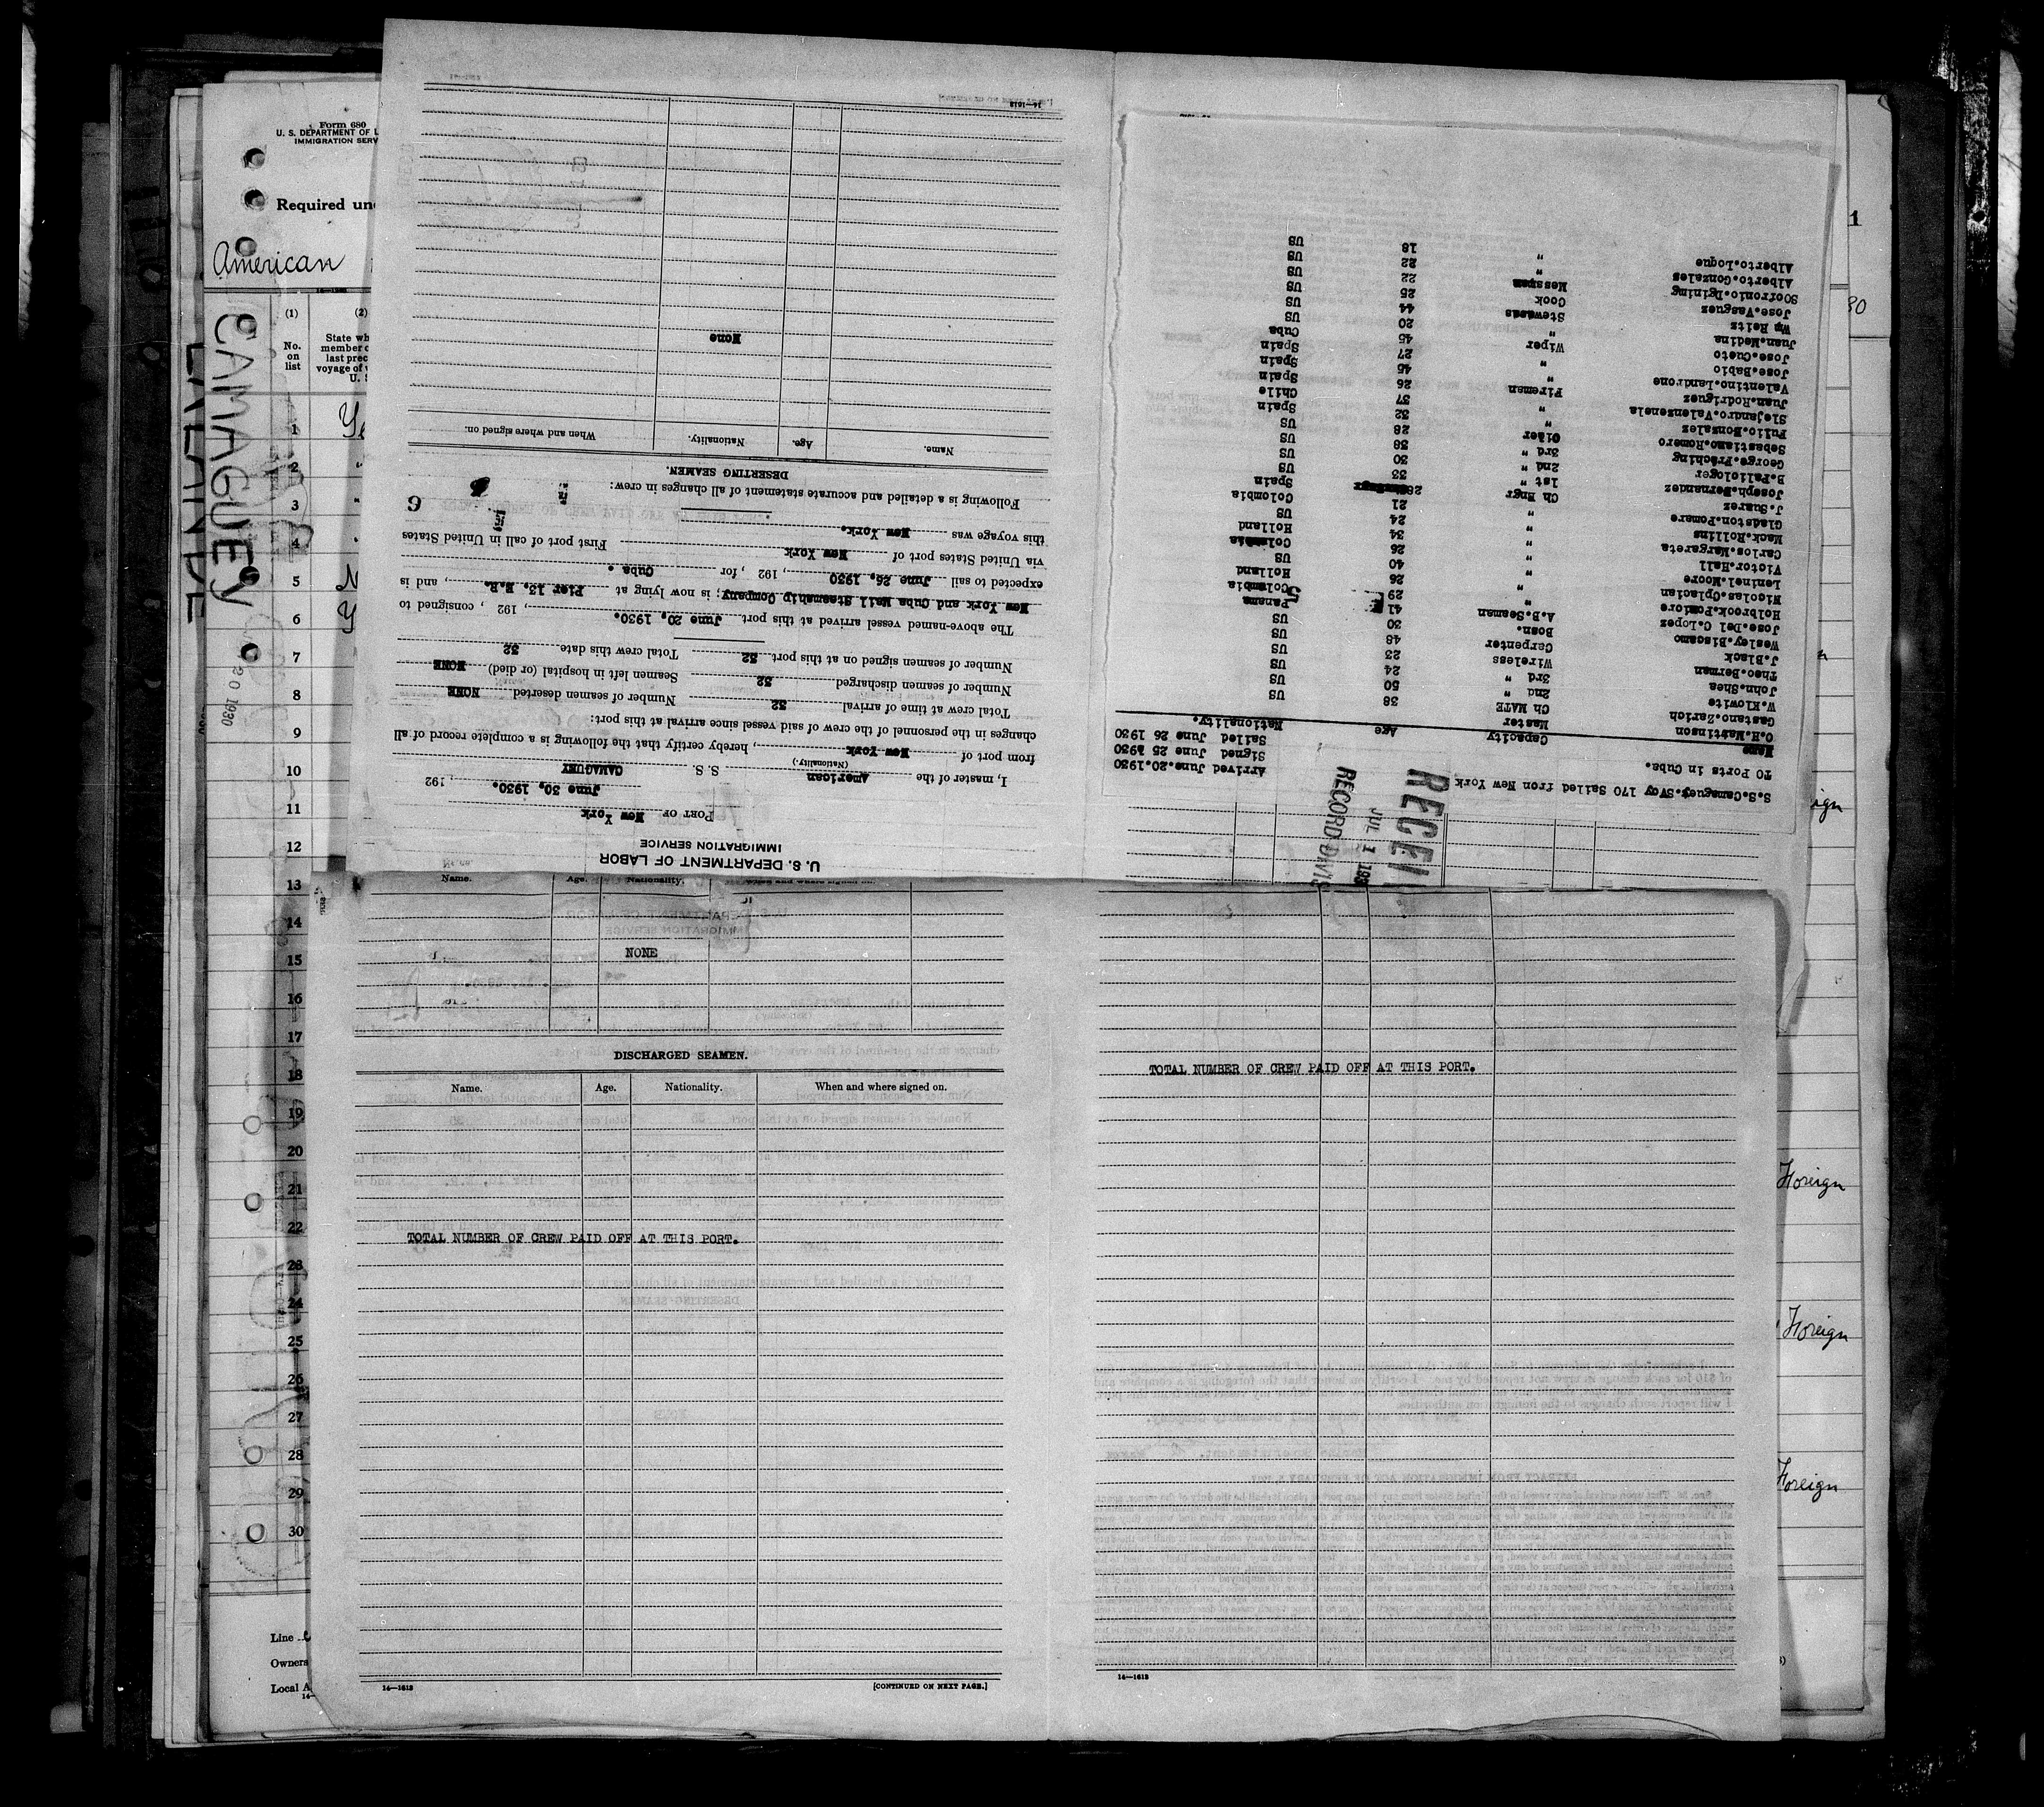 Form 680
U. S. DEPARTMENT OF L
IMMIGRATION SERV
Required und
American
(1)
No.
on
list
(2)
State wh
member o
last prec
voyage of v
U. S
CAMAGUEY
20 1930
1
2
3
4
5
6
7
8
9
10
11
12
13
14
15
16
17
18
19
20
21
22
23
24
25
26
27
28
29
30
Line
Owners
Local A
U. S. DEPARTMENT OF LABOR
IMMIGRATION SERVICE
PORT OF New York
June 30, 1930. , 192
I, master of the American S. S. CAMAGUEY
(Nationality.)
from port of New York , hereby certify that the following is a complete record of all
changes in the personnel of the crew of said vessel since arrival at this port:
Total crew at time of arrival 32 Number of seamen deserted NONE
Number of seamen discharged 32 Seamen left in hospital (or died) NONE
Number of seamen signed on at this port 32 Total crew this date 32
The above-named vessel arrived at this port June 20, 1930. , 192 , consigned to
New York and Cuba Mail Steamship Company ; is now lying at Pier 13, E.R. , and is
expected to sail June 26, 1930 , 192 , for Cuba .
via United States port of New York First port of call in United States
this voyage was New York.
6
Following is a detailed and accurate statement of all changes in crew:
DESERTING SEAMEN.
Name. Age. Nationality. When and where signed on.
None
14—1613
S.S.Camaguey. Voy 170 Sailed from New York
TO Ports in Cuba.
Arrived June.20.1930
Signed June 25 1930
Sailed June 26 1930
Name Capacity Age Nationality.
O.H.Martinson Master 38 US
Gaetano.Zarich Ch MATE 50 US
W.Klowite 2nd " 24 US
John.Shea 3rd " 23 US
Theo.Berman Wireless 48 US
J.Black Carpenter 30 US
Wesley.Biscamo Bosn. 41 Panama
Jose.Del C.Lopez A.B.Seaman 29 Colombia
Holbrook.Pomiore " 26 Holland
Nicolas.Cplacian " 40 US
Leninel.Moore " 26 Columbia
Victor.Hall " 34 Holland
Carlos.Margareta " 24 US
Mack.Rollins " 21 Colombia
Gladston.Pomare " Spain
J.Suarez
Joseph.Bernandez Ch Engr US
B.Paliologer 1st " 33 US
George.Frohing 2nd " 30 US
Sebastiano.Romero 3rd " 38 US
Pulio.Bonzalez Oiler 28 Spain
Slejandro.Valenzenela " 32 Chile
Juan.Rodriguez " 37 Spain
Valentino.Landrone Fireman 26 Spain
Jose.Babio " 45 Spain
Jose.Cueto " 27 Cuba
Juan.Medina Wiper 45 US
Wm Reitz " 20 US
Jose.Vasguez Steward 44 US
SOofronio.Dgining Cook 25 US
Alberto.Gonzales Messman 22 US
Alberto.Loque " 22 US
" 18
RECEI
JUL 1 193
RECORD DIVIS
Name. Age. Nationality. When and where signed on.
NONE
DISCHARGED SEAMEN.
Name. Age. Nationality. When and where signed on.
TOTAL NUMBER OF CREW PAID OFF AT THIS PORT.
14—1613
[CONTINUED ON NEXT PAGE.]
TOTAL NUMBER OF CREW PAID OFF AT THIS PORT.
14—1613
1
30
ign
Foreign
Foreign
Foreign